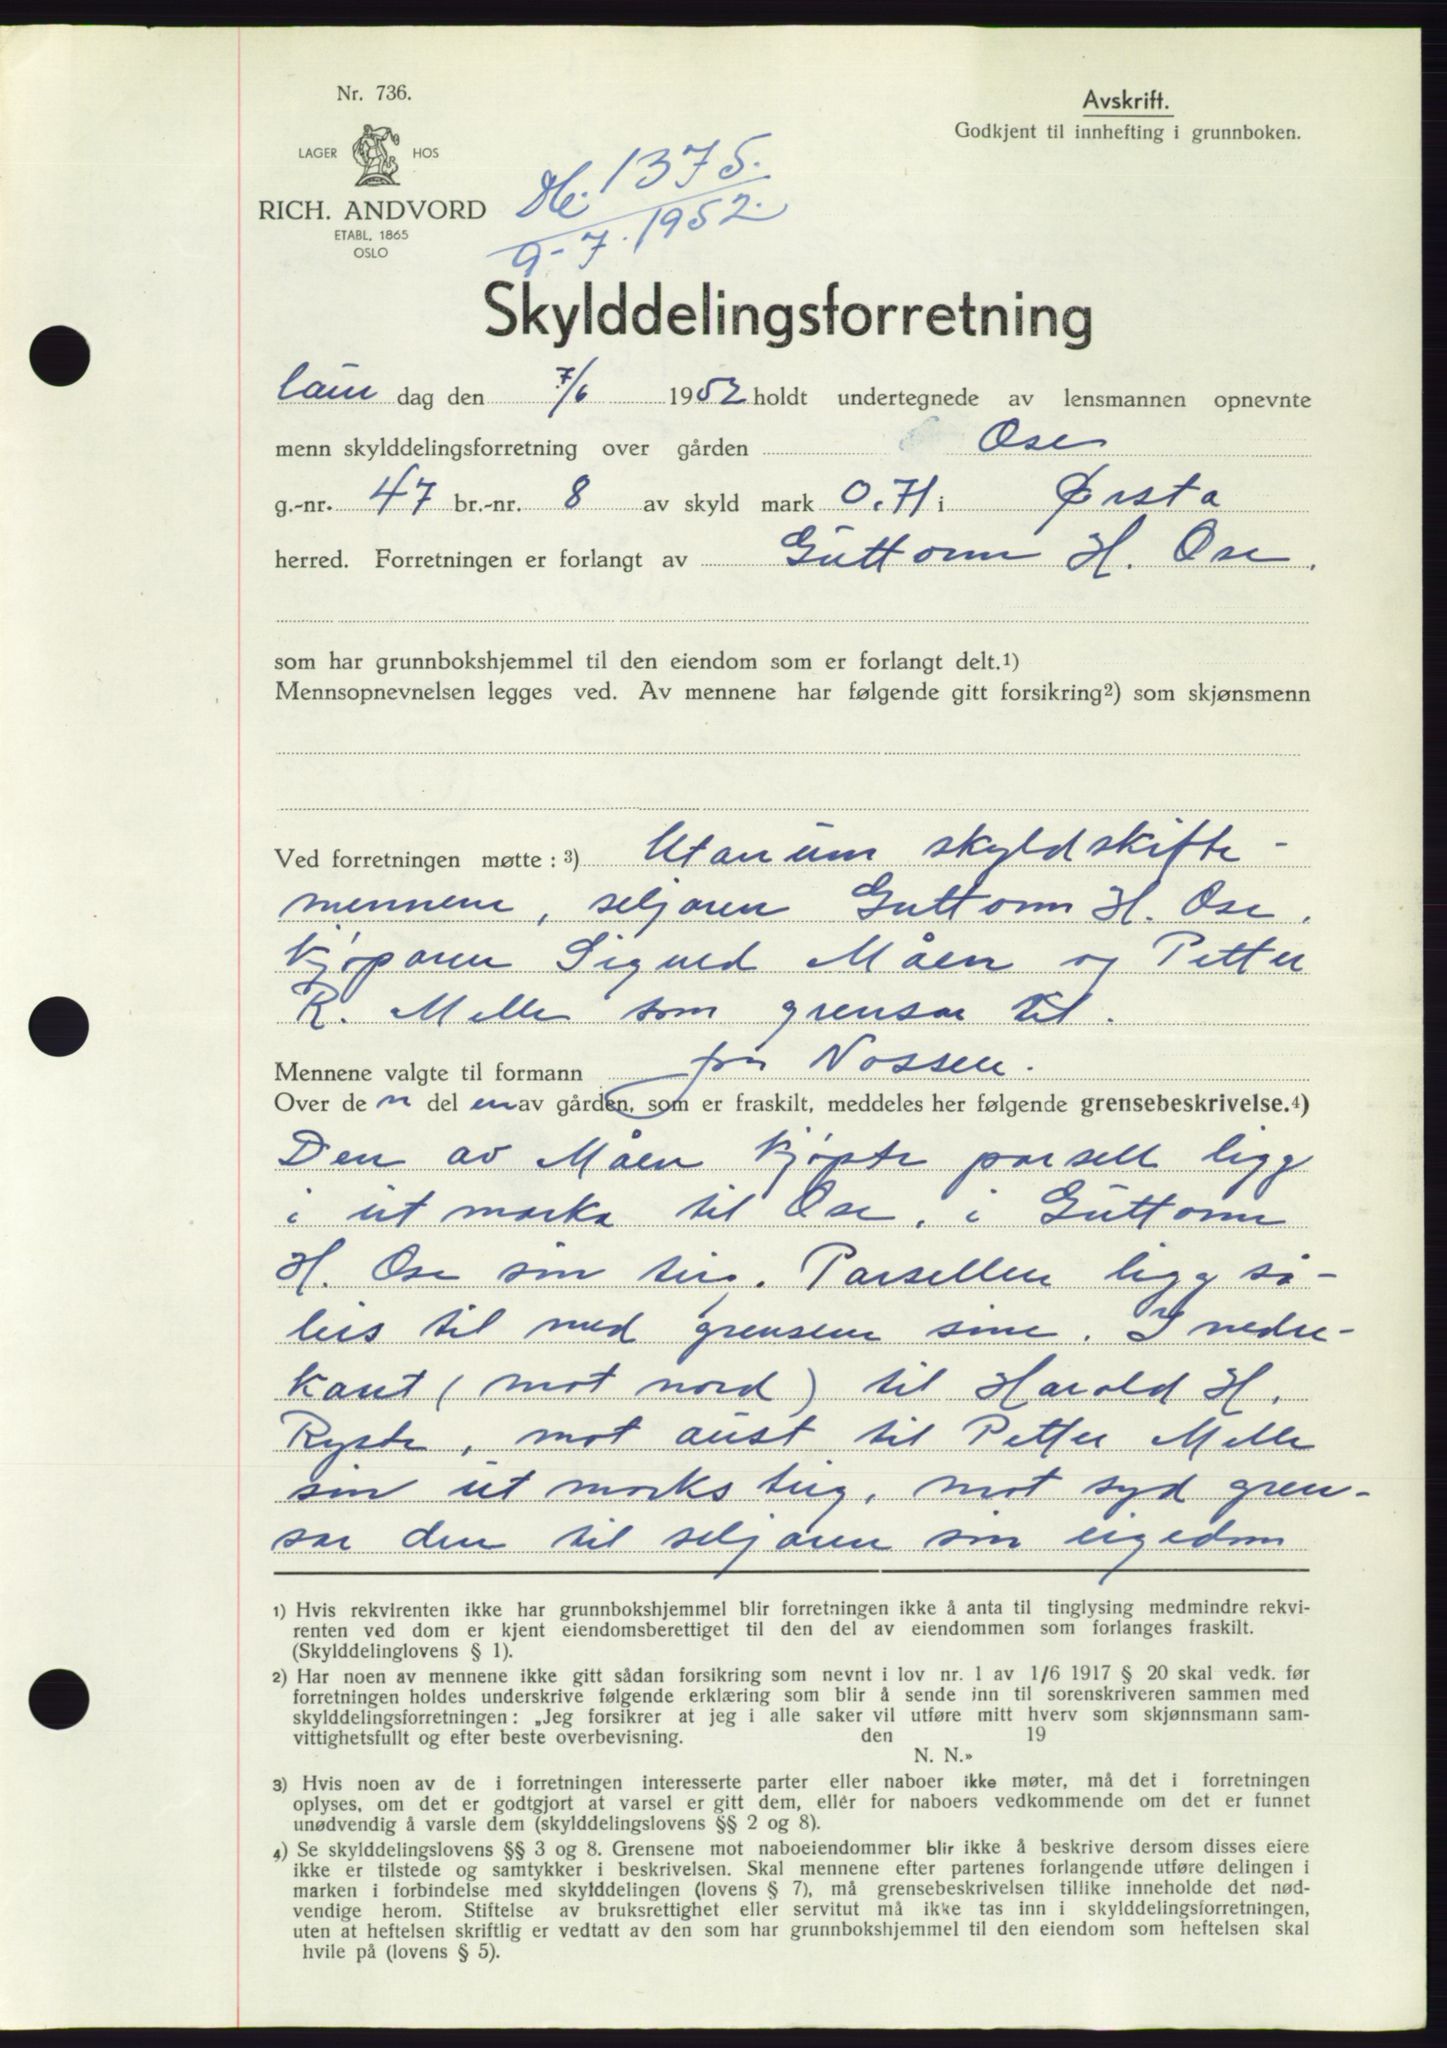 Nr. 736.
Avskrift.
Godkjent til innhefting i grunnboken.
LAGER HOS
RICH. ANDVORD
ETABL. 1865
OSLO
Db. 1375.
9-7.1952.
Skylddelingsforretning
Laur dag den 7/6 1952 holdt undertegnede av lensmannen opnevnte
menn skylddelingsforretning over gården Ose
g.-nr. 47 br.-nr. 8 av skyld mark 0.71 i Ørsta
herred. Forretningen er forlangt av Guttorm H. Ose.
som har grunnbokshjemmel til den eiendom som er forlangt delt.1)
Mennsopnevnelsen legges ved. Av mennene har følgende gitt forsikring2) som skjønsmenn
Ved forretningen møtte: 3) Utanum skyldskifte-
mennene, seljaren Guttorm H. Ose,
kjøparen Sigurd Måen og Petter
R. Melle som grensar til.
Mennene valgte til formann Per Nossen.
Over den delen av gården, som er fraskilt, meddeles her følgende grensebeskrivelse.4)
Den av Måen kjøpte parsell ligg
i utmarka til Ose, i Guttorm
H. Ose sin teig. Parsellen ligg så-
leis til med grensene sine. I nedre-
kant (mot nord) til Harald H.
Ryste, mot aust til Petter Melle
sin utmarksteig, mot syd gren-
sar den til seljaren sin eigedom
1) Hvis rekvirenten ikke har grunnbokshjemmel blir forretningen ikke å anta til tinglysing medmindre rekvi-
renten ved dom er kjent eiendomsberettiget til den del av eiendommen som forlanges fraskilt.
(Skylddelinglovens § 1).
2) Har noen av mennene ikke gitt sådan forsikring som nevnt i lov nr. 1 av 1/6 1917 § 20 skal vedk. før
forretningen holdes underskrive følgende erklæring som blir å sende inn til sorenskriveren sammen med
skylddelingsforretningen: „Jeg forsikrer at jeg i alle saker vil utføre mitt hverv som skjønnsmann sam-
vittighetsfullt og efter beste overbevisning. den 19
N. N.»
3) Hvis noen av de i forretningen interesserte parter eller naboer ikke møter, må det i forretningen
oplyses, om det er godtgjort at varsel er gitt dem, eller for naboers vedkommende om det er funnet
unødvendig å varsle dem (skylddelingslovens §§ 2 og 8).
4) Se skylddelingslovens §§ 3 og 8. Grensene mot naboeiendommer blir ikke å beskrive dersom disses eiere
ikke er tilstede og samtykker i beskrivelsen. Skal mennene efter partenes forlangende utføre delingen i
marken i forbindelse med skylddelingen (lovens § 7), må grensebeskrivelsen tillike inneholde det nød-
vendige herom. Stiftelse av bruksrettighet eller servitut må ikke tas inn i skylddelingsforretningen,
uten at heftelsen skriftlig er vedtatt av den som har grunnbokshjemmel til den eiendom som heftelsen skal
hvile på (lovens § 5).